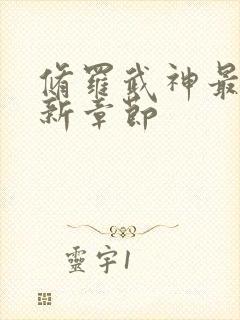 脩羅武神最
新章節
靈宇1